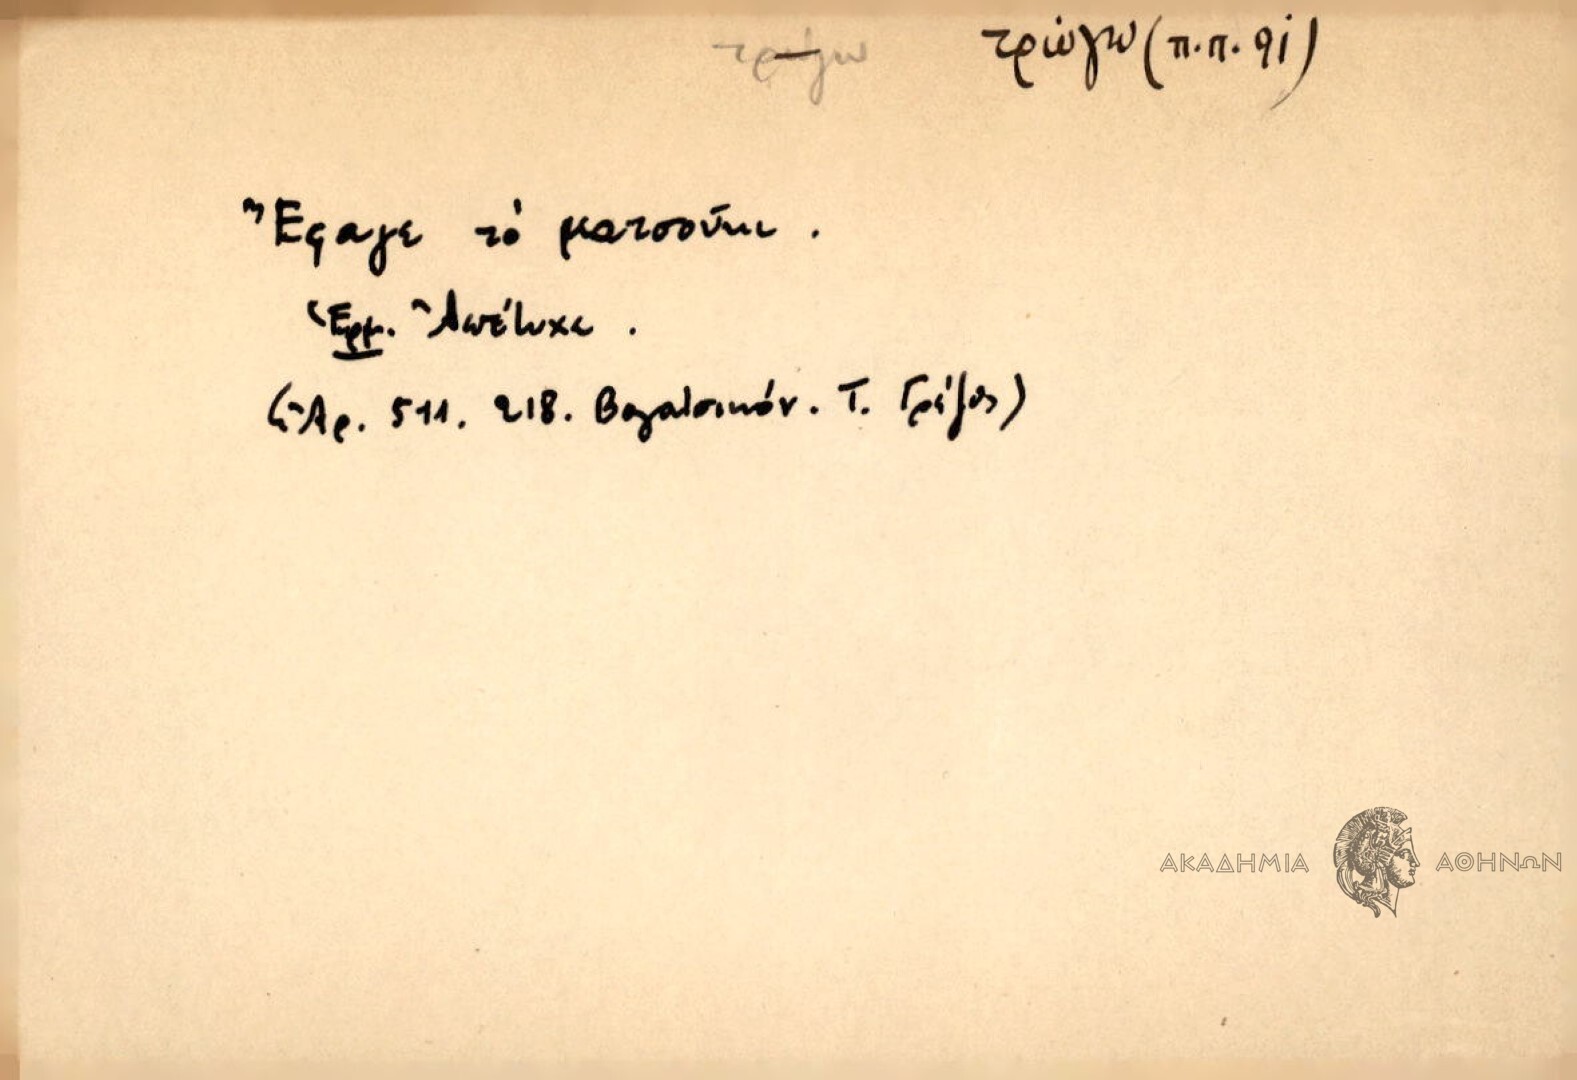 τρώγω τρώγω (π.π. 91)
Ἔφαγε τὸ ματσούκι.
Ἑρμ. Ἀπέτυχε.
(Ἀρ. 511. 218. Βογατσικόν. Τ. Γρέζος)
ΑΚΑΔΗΜΙΑ ΑΘΗΝΩΝ